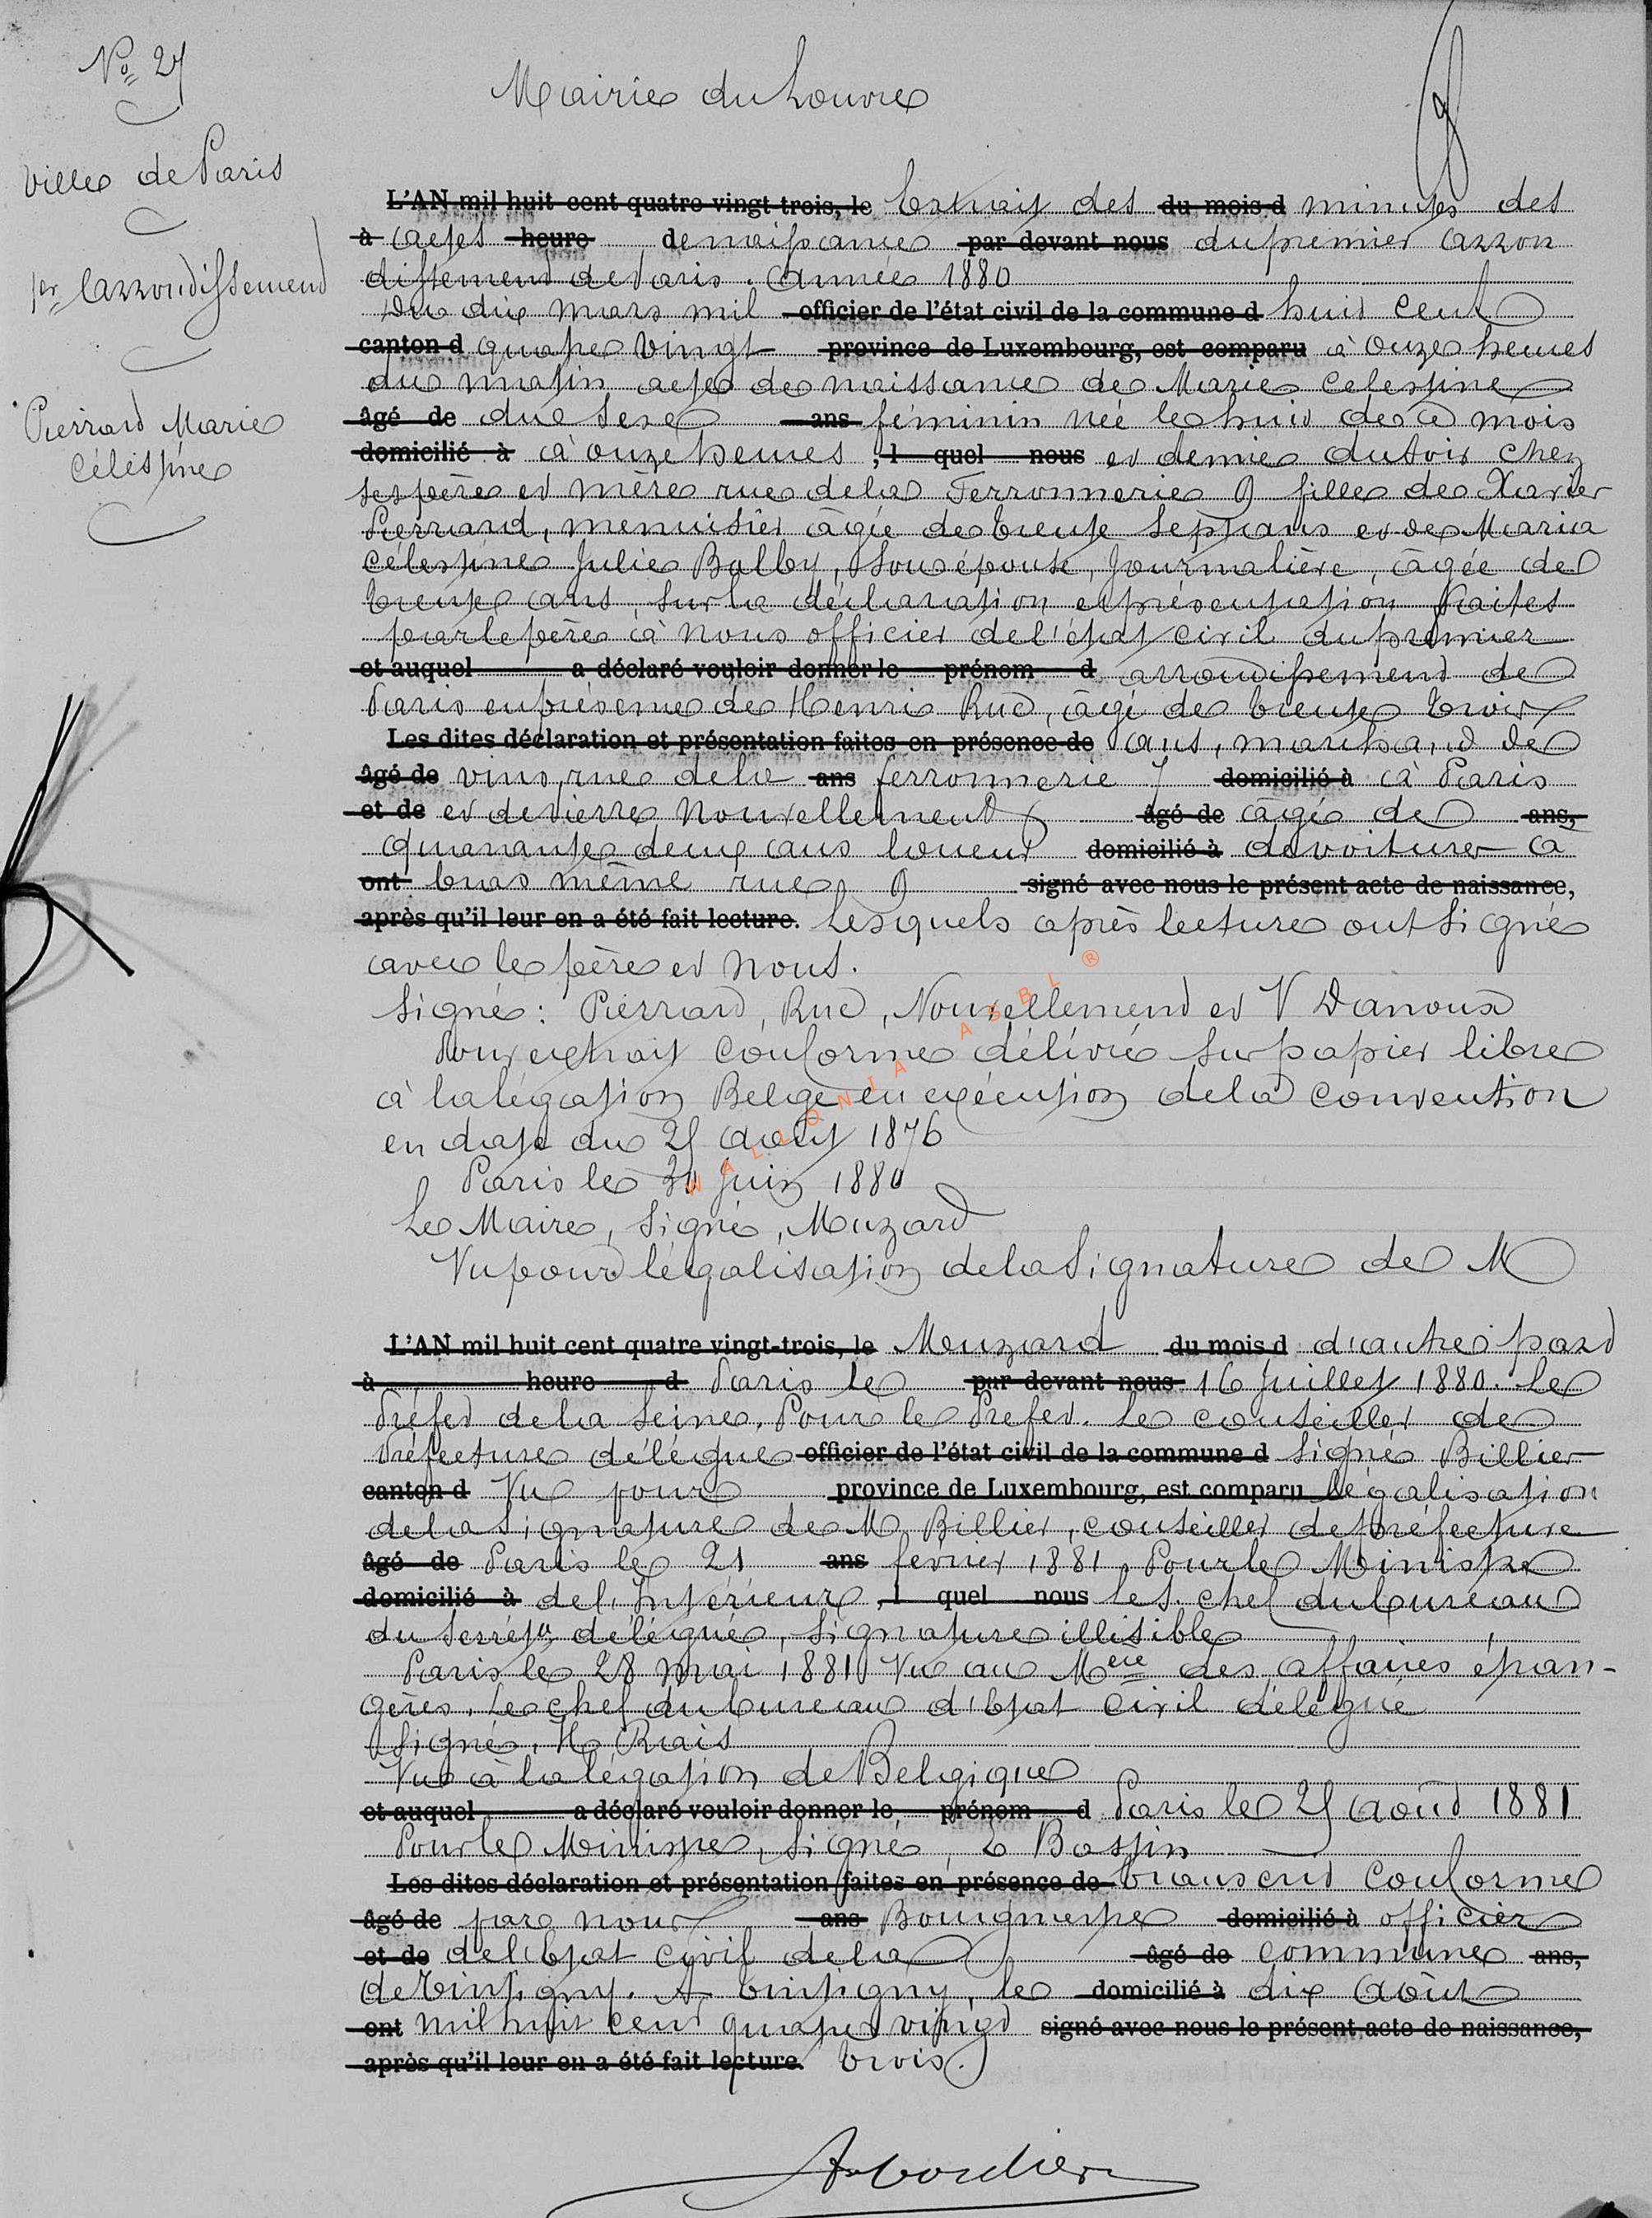 No 27
Mairie du Louvre
Ville de Paris
1er Arrondissement
Pierrard Marie
Célestine
L'AN mil huit cent quatre vingt-trois, le Extrait des du mois d minutes des
à actes heure de naissance par devant nous du premier arron
dissement de Paris. Année 1880
Du dix mars mil officier de l'état civil de la commune d huit cent
canton d quatre vingt province de Luxembourg, est comparu à onze heures
du matin acte de naissance de Marie Celestine
âgé de du sexe ans féminin née le huit de ce mois
domicilié à à onze heures , l quel nous et demie du soir chez
ses père et mère rue de la Ferronnerie 9 fille de Xavier
Pierrard, menuisier âgé de trente sept ans et de Maria
Célestine Julie Balby, son épouse, Journalière, âgée de
trente ans, sur la déclaration et présentation faites
par le père à nous officier de l'état civil du premier
et auquel a déclaré vouloir donner le prénom d arrondissement de
Paris en présence de Henri Rud, âgé de trente trois
Les dites déclaration et présentation faites en présence de ans, marchand de
âgé de vins, rue de la ans ferronnerie 7 domicilié à à Paris
et de et de Pierre Nouvellement âgé de âgé de ans,
quarante deux ans loueur domicilié à de voitures à
ont bras même rue 9 signé avec nous le présent acte de naissance,
après qu'il leur en a été fait lecture. Lesquels après lecture ont signé
avec le père et nous.
Signé: Pierrard, Rud, Nouvellement et V Danoux
Pour extrait conforme délivré sur papier libre
à la légation Belge en exécution de la convention
en date du 25 août 1876
Paris le 30 Juin 1880
Le Maire, Signé, Muzard
Vu pour légalisation de la Signature de M
WALLONIA ASBL ®
L'AN mil huit cent quatre vingt-trois, le Muzard du mois d d'autre part
à heure d Paris le par devant nous 16 Juillet 1880. Le
Préfet de la Seine, Pour le Prefet. Le conseiller de
Préfecture délégué officier de l'état civil de la commune d Signé Billier
canton d Vu pour province de Luxembourg, est comparu légalisation
de la signature de M Billier, conseiller de préfecture
âgé de Paris le 21 ans février 1881, Pour le Ministre
domicilié à de l'Intérieur , l quel nous le S. chef du bureau
du délégué, Signature illisible
Paris le 28 mai 1881 Vu au Mere des affaires étran-
gères. Le chef du bureau d'état civil délégué
Signé, H Rais
Vu à la légation de Belgique
et auquel a déclaré vouloir donner le prénom d Paris le 25 août 1881
Pour le Ministre, Signé, L Bastin
Les dites déclaration et présentation faites en présence de transcrit conforme
âgé de par nous ans Bourgmestre domicilié à officier
et de de l'état civil de la âgé de commune ans,
de Tintigny. A Tintigny, le domicilié à dix Août
ont mil huit cent quatre vingt signé avec nous le présent acte de naissance,
après qu'il leur en a été fait lecture. trois.